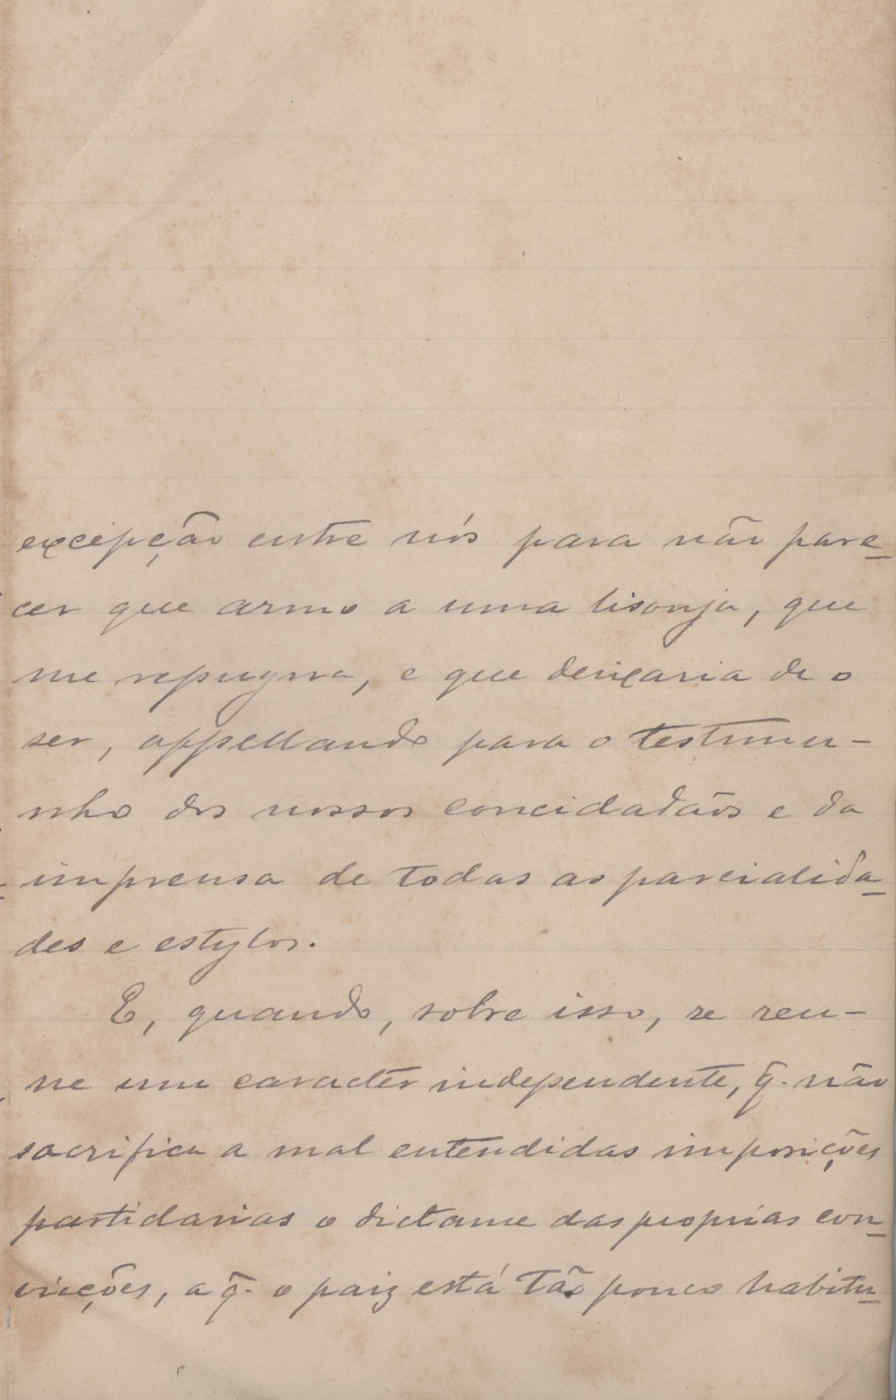 excepção entre nós para não pare-
cer que armo a uma lisonja, que
me repugna, e que deixaria de o
ser, appellando para o testemu-
nho dos nossos concidadãos e da
imprensa de todas as parcialida-
des e estylos.
E, quando, sobre isso, se reu-
ne um caracter independente, q̃. não
sacrifica a mal entendidas imposições
partidarias o dictame das proprias con-
vicções, a q̃. o paiz está tão pouco habitu-